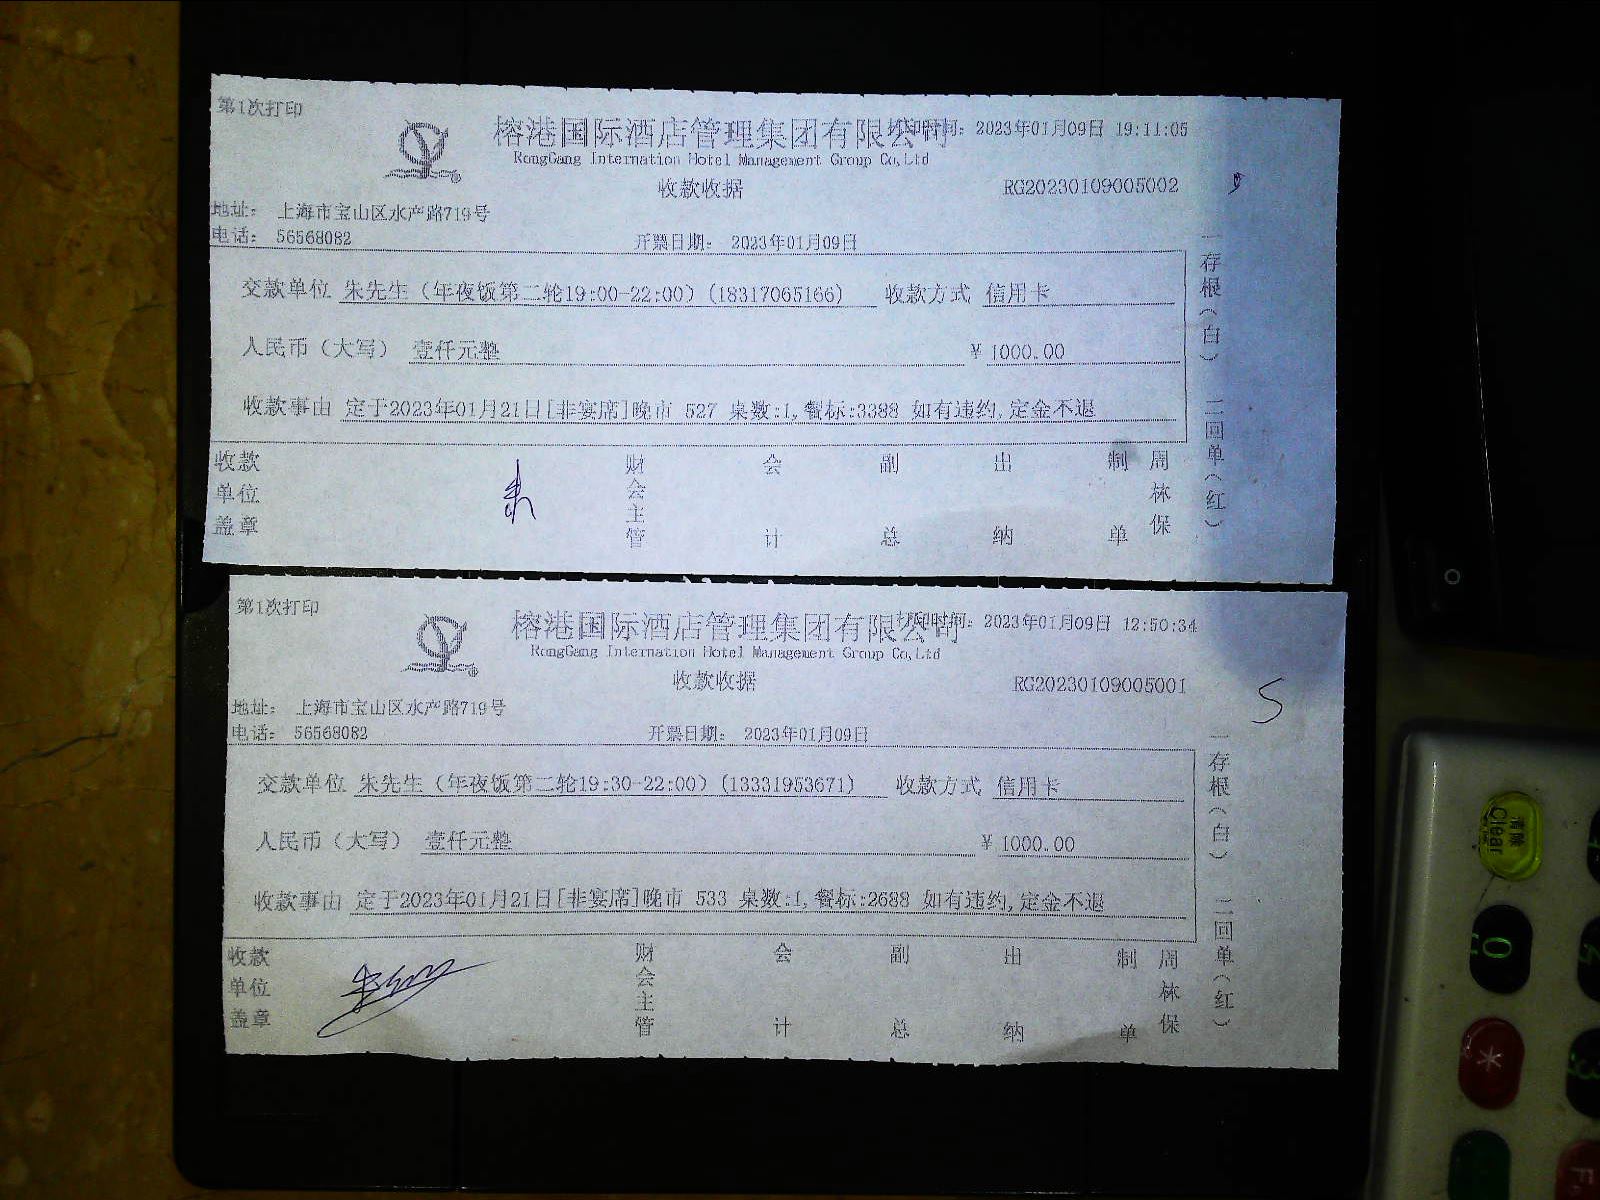 第1次打印
榕港国际酒店管理集团有限公司 打印时间：2023年01月09日 19:11:05
RongGang Internation Hotel Management Group Co,Ltd
收款收据 RG20230109005002
地址： 上海市宝山区水产路719号
电话： 56568082 开票日期： 2023年01月09日
交款单位 朱先生（年夜饭第二轮19:00-22:00）(18317065166) 收款方式 信用卡
人民币（大写） 壹仟元整 ¥ 1000.00
收款事由 定于2023年01月21日[非宴席]晚市 527 桌数:1,餐标:3388 如有违约,定金不退
收款单位盖章 朱 财会主管 会计 副总 出纳 制单 周林保
一存根（白） 二回单（红）
第1次打印
榕港国际酒店管理集团有限公司 打印时间：2023年01月09日 12:50:34
RongGang Internation Hotel Management Group Co,Ltd
收款收据 RG20230109005001
5
地址： 上海市宝山区水产路719号
电话： 56568082 开票日期： 2023年01月09日
交款单位 朱先生（年夜饭第二轮19:30-22:00）(13331953671) 收款方式 信用卡
人民币（大写） 壹仟元整 ¥ 1000.00
收款事由 定于2023年01月21日[非宴席]晚市 533 桌数:1,餐标:2688 如有违约,定金不退
收款单位盖章 财会主管 会计 副总 出纳 制单 周林保
一存根（白） 二回单（红）
清除
Clear
0
*